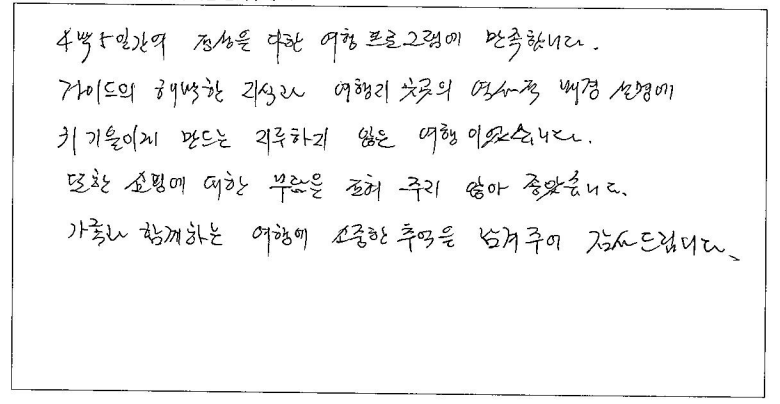 4박5일간의 정성을 다한 여행 프로그램에 만족합니다.
가이드의 해박한 지식과 여행지 곳곳의 역사적 배경 설명에
귀 기울이게 만드는 지루하지 않은 여행이었습니다.
또한 쇼핑에 대한 부담은 전혀 주지 않아 좋았습니다.
가족과 함께하는 여행에 소중한 추억을 남겨주어 감사드립니다.